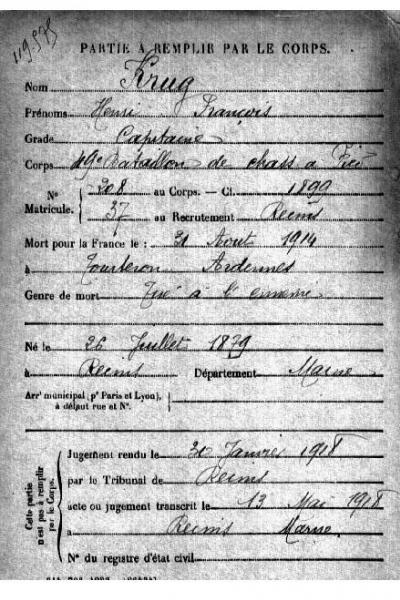 119.578
PARTIE À REMPLIR PAR LE CORPS.
Nom Krug
Prénoms Henri François
Grade Capitaine
Corps 49e Bataillon de chass à Pied
N° Matricule. 208 au Corps. — Cl. 1899
37 au Recrutement Reims
Mort pour la France le : 31 Août 1914
à Tourteron Ardennes
Genre de mort Tué à l'ennemi
Né le 26 Juillet 1879
à Reims Département Marne
Arrt municipal (pr Paris et Lyon), à défaut rue et N°.
Cette partie n'est pas à remplir par le Corps.
Jugement rendu le Janvier 1918
par le Tribunal de Reims
acte ou jugement transcrit le 13 Mai 1918
à Reims Marne
N° du registre d'état civil